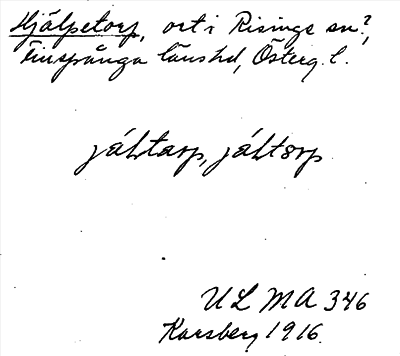 Hjälpetorp, ort i Risinge sn?,
Finspånga länshd, Österg. l.
jáltarp, jáltorp
ULMA 346
Karsberg 1916.